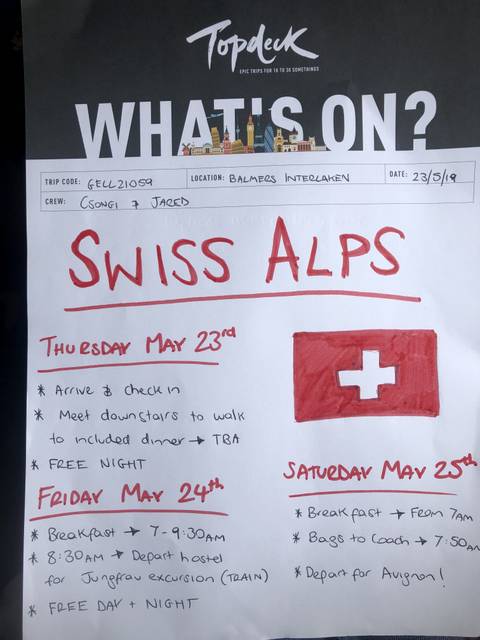 Topdeck
EPIC TRIPS FOR 18 TO 30 SOMETHINGS
WHAT'S ON?
TRIP CODE: GELL21059 LOCATION: BALMERS INTERLAKEN DATE: 23/5/19
CREW: CSONGI & JARED
SWISS ALPS
THURSDAY MAY 23rd
* Arrive & check in
* Meet downstairs to walk
to included dinner → TBA
* FREE NIGHT
FRIDAY MAY 24th
* Breakfast → 7-9:30AM
* 8:30AM → Depart hostel
for Jungfrau excursion (TRAIN)
* FREE DAY + NIGHT
SATURDAY MAY 25th
* Breakfast → From 7AM
* Bags to Coach → 7:50AM
* Depart for Avignon!